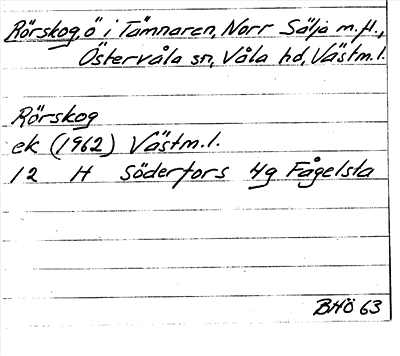 Rörskog, ö i Tämnaren, Norr Sälja m.fl.,
Östervåla sn, Våla hd, Västm.l.
Rörskog
ek (1962) Västm.l.
12 H Söderfors 4g Fågelsta
BHÖ 63